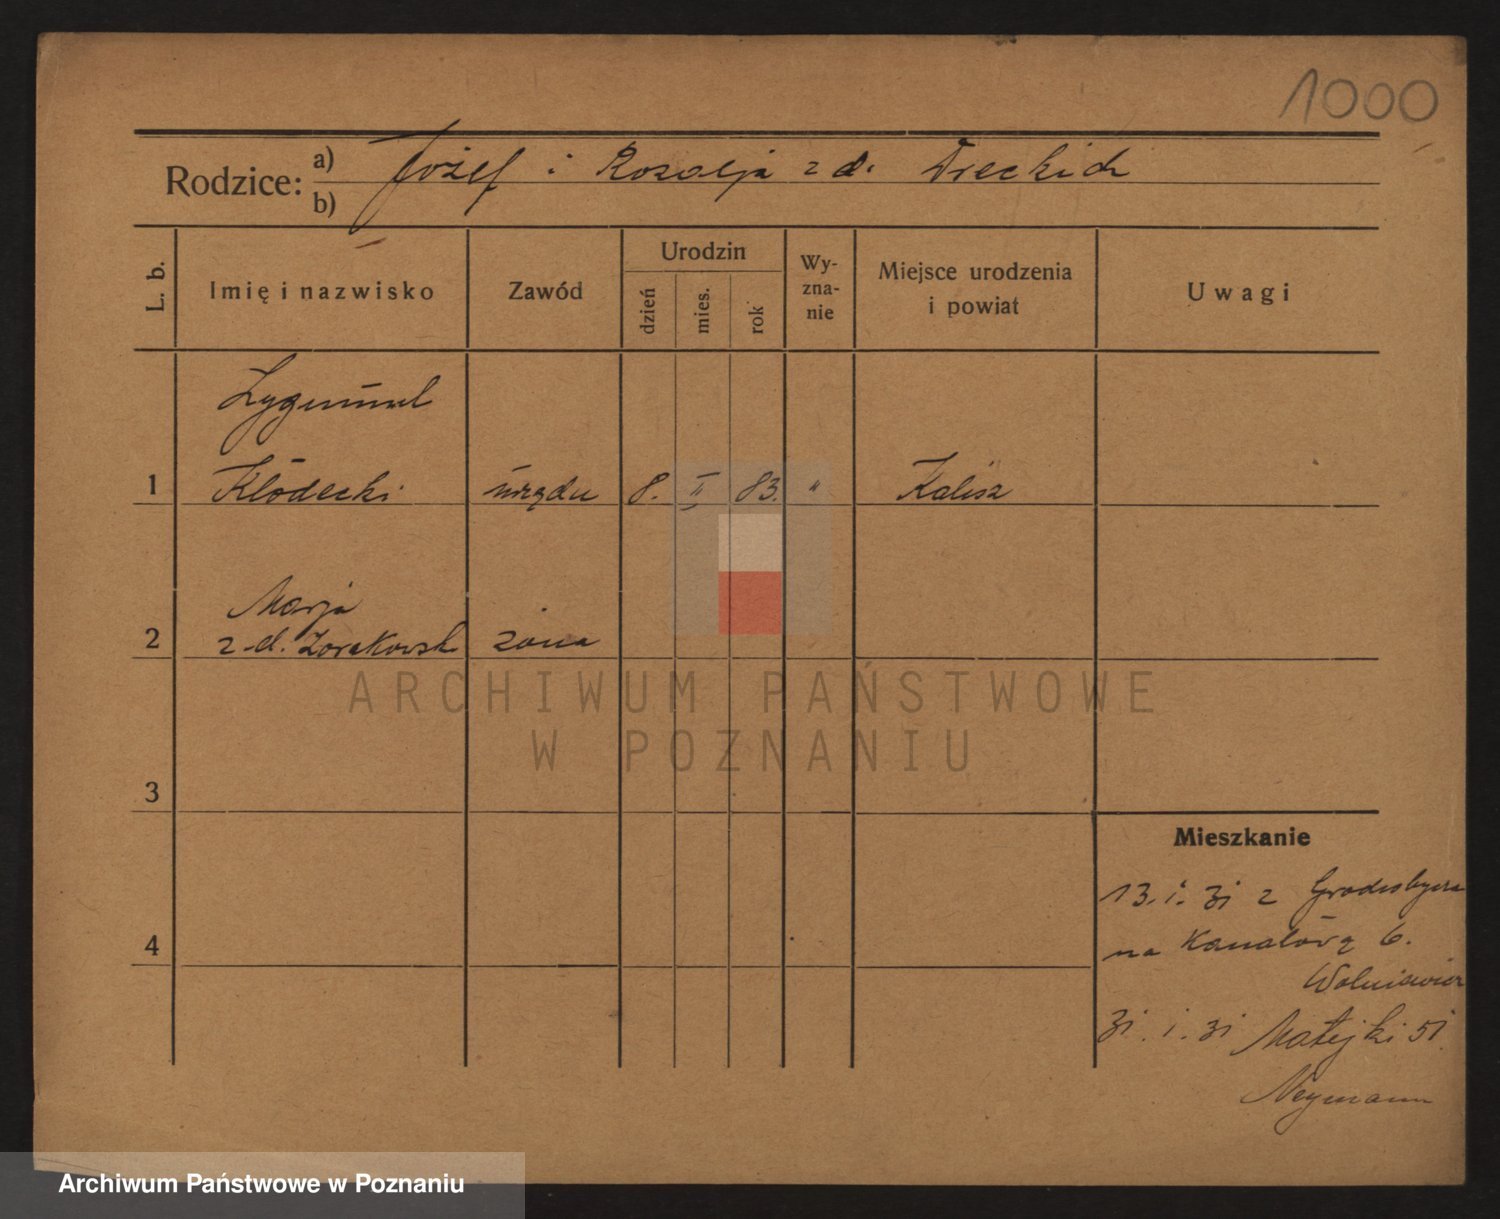 1000
Rodzice: a) Józef i Rozalja z d. Dreckich
b)
L. b.
Imię i nazwisko
Zawód
Urodzin
dzień
mies.
rok
Wy-
zna-
nie
Miejsce urodzenia
i powiat
Uwagi
Zygmunt
1 Kłodecki urzędn 8. II 83. " Kalisz
Marja
2 z d. Żorakowsk żona
3
4
Mieszkanie
13. i. 31 z
na Kanałową 6.
31. i. 31 Matejki 51.
Neymann
ARCHIWUM PAŃSTWOWE
W POZNANIU
Archiwum Państwowe w Poznaniu